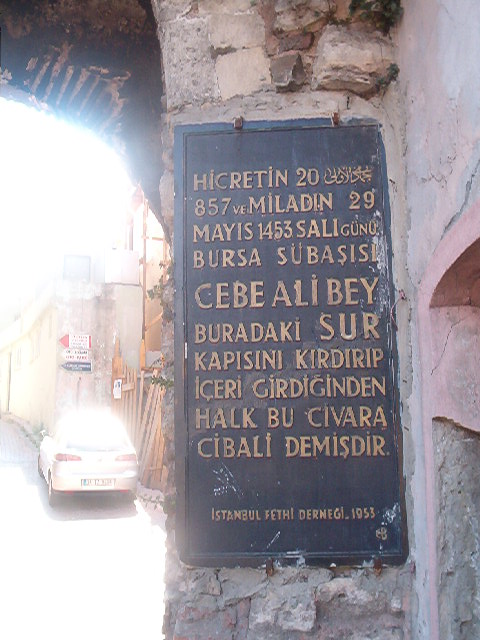 HİCRETİN 20
857 ve MİLADIN 29
MAYIS 1453 SALI GÜNÜ
BURSA SÜBAŞISI
CEBE ALİ BEY
BURADAKİ SUR
KAPISINI KIRDIRIP
İÇERİ GİRDİĞİNDEN
HALK BU CİVARA
CİBALİ DEMİŞDİR.
İSTANBUL FETHİ DERNEĞİ_1953